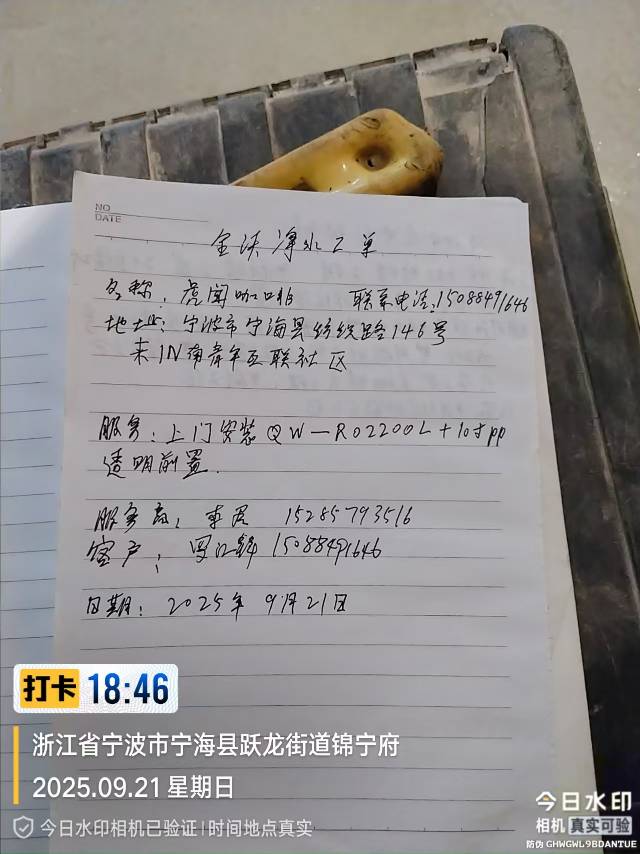 NO
DATE
全沃净水工单
名称：虎闻咖啡 联系电话：15088491646
地址：宁波市宁海县纺织路146号
来IN南青年互联社区
服务：上门安装QW—RO2200L+10寸pp
透明前置.
服务商： 15285793516
客户： 15088491646
日期：2025年9月21日
打卡 18:46
浙江省宁波市宁海县跃龙街道锦宁府
2025.09.21 星期日
今日水印相机已验证 | 时间地点真实
今日水印
相机 真实可验
防伪 GHWGWL9BDANTUE